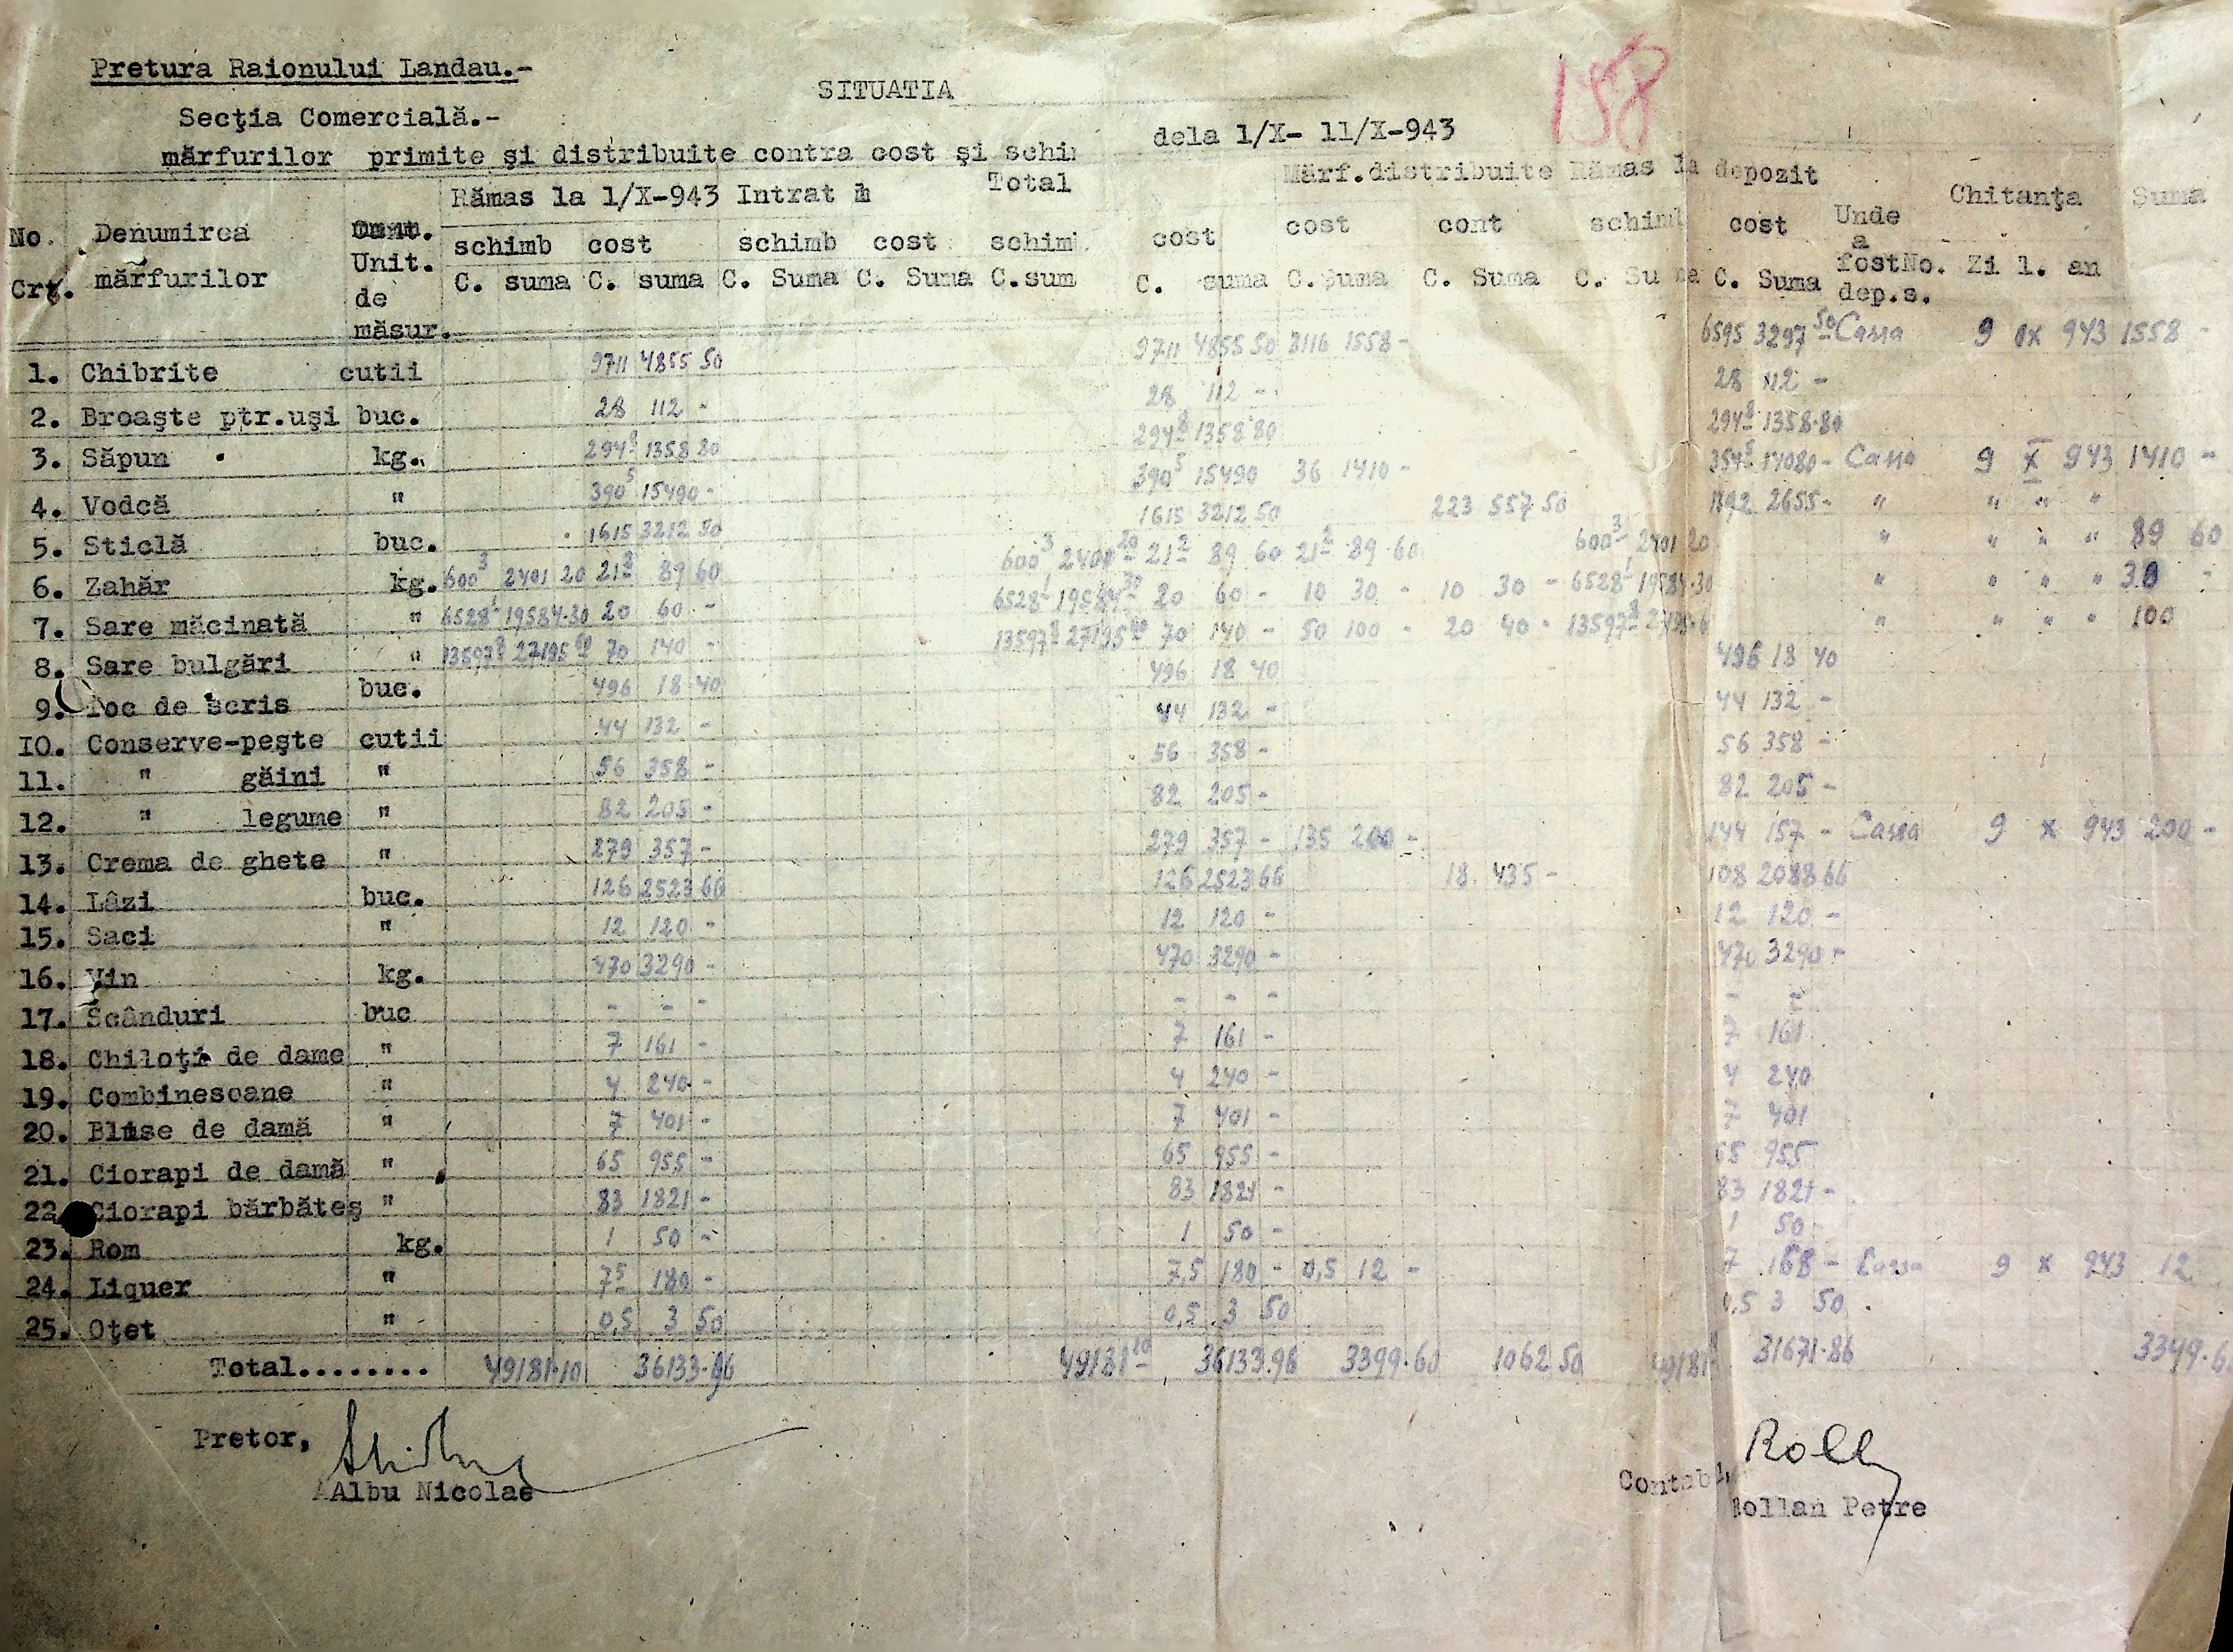 Pretura Raionului Landau.-
SITUATIA
158
Secţia Comercială.-
dela 1/X- 11/X-943
mărfurilor primite şi distribuite contra cost şi schi
No. Crt. Denumirea mărfurilor Unit. de măsur. Rămas la 1/X-943 Intrat Total Mărf.distribuite Rămas la depozit Unde a fost dep.s. Chitanţa Suma
schimb cost schimb cost schim cost cost cont schimb cost No. Zi l. an
C. suma C. suma C. Suma C. Suma C.sum C. suma C. Suma C. Suma C. Suma C. Suma
1. Chibrite cutii 9711 4855 50 9711 4855 50 3116 1558 - 6595 3297 50 Cassa 9 IX 943 1558 -
2. Broaşte ptr.uşi buc. 28 112 - 28 112 - 28 112 -
3. Săpun kg. 294 8 1358 80 294 8 1358 80 294 8 1358.80
4. Vodcă " 390 5 15490 - 390 5 15490 36 1410 - 354 5 14080 - Cassa 9 X 943 1410 -
5. Sticlă buc. 1615 3212 50 1615 3212 50 223 557 50 1392 2655 - " " " "
6. Zahăr kg. 600 3 2401 20 21 2 89 60 600 3 2401 20 21 2 89 60 21 2 89.60 600 3 2401 20 " " " " 89 60
7. Sare măcinată " 6528 1 19584.30 20 60 - 6528 1 19584 30 20 60 - 10 30 - 10 30 - 6528 1 19584.30 " " " " 30 -
8. Sare bulgări " 13597 8 27195 60 70 140 - 13597 8 27195 60 70 140 - 50 100 - 20 40 - 13597 8 27195.6 " " " " 100
9. Toc de scris buc. 496 18 40 496 18 40 496 18 40
10. Conserve-peşte cutii 44 132 - 44 132 - 44 132 -
11. " găini " 56 358 - 56 358 - 56 358 -
12. " legume " 82 205 - 82 205 - 82 205 -
13. Crema de ghete " 279 357 - 279 357 - 135 200 - 144 157 - Cassa 9 X 943 200 -
14. Lâzi buc. 126 2523 66 126 2523 66 18. 435 - 108 2088 66
15. Saci " 12 120 - 12 120 - 12 120 -
16. Vin kg. 470 3290 - 470 3290 - 470 3290 -
17. Scânduri buc - - - - - - - -
18. Chiloţi de dame " 7 161 - 7 161 - 7 161
19. Combinesoane " 4 240 - 4 240 - 4 240
20. Bluse de damă " 7 401 - 7 401 - 7 401
21. Ciorapi de damă " 65 955 - 65 955 - 65 955
22. Ciorapi bărbăteş " 83 1821 - 83 1821 - 83 1821 -
23. Rom kg. 1 50 - 1 50 - 1 50 -
24. Liquer " 7 5 180 - 7,5 180 - 0,5 12 - 7 168 - Cassa 9 X 943 12
25. Oţet " 0,5 3 50 0,5 3 50 0,5 3 50
Total........ 49181.10 36133.96 49181 10 36133.96 3399.60 1062 50 49181 31671.86 3349.6
Pretor,
Albu Nicolae
Contabil,
Roll
Rollan Petre